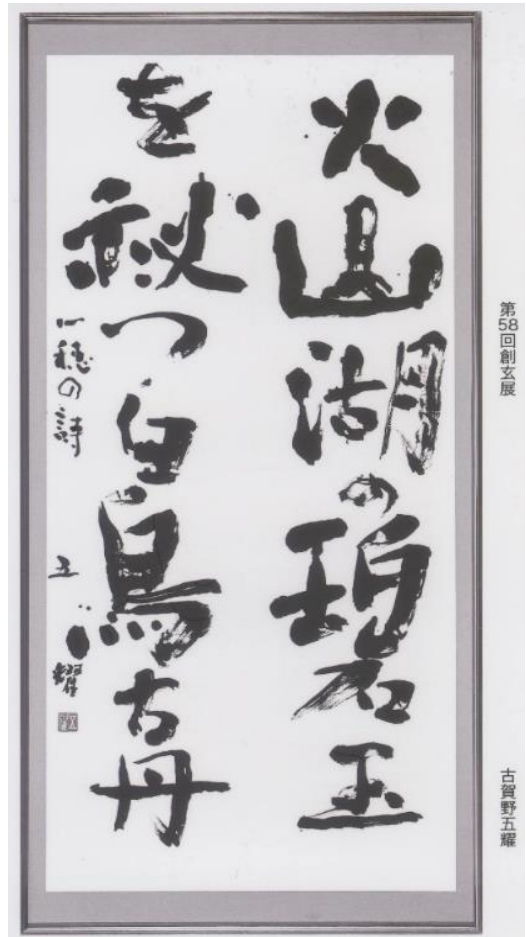 火山湖の碧玉
を秘つ白鳥古丹
一穂の詩
五耀
第58回創玄展
古賀野五耀